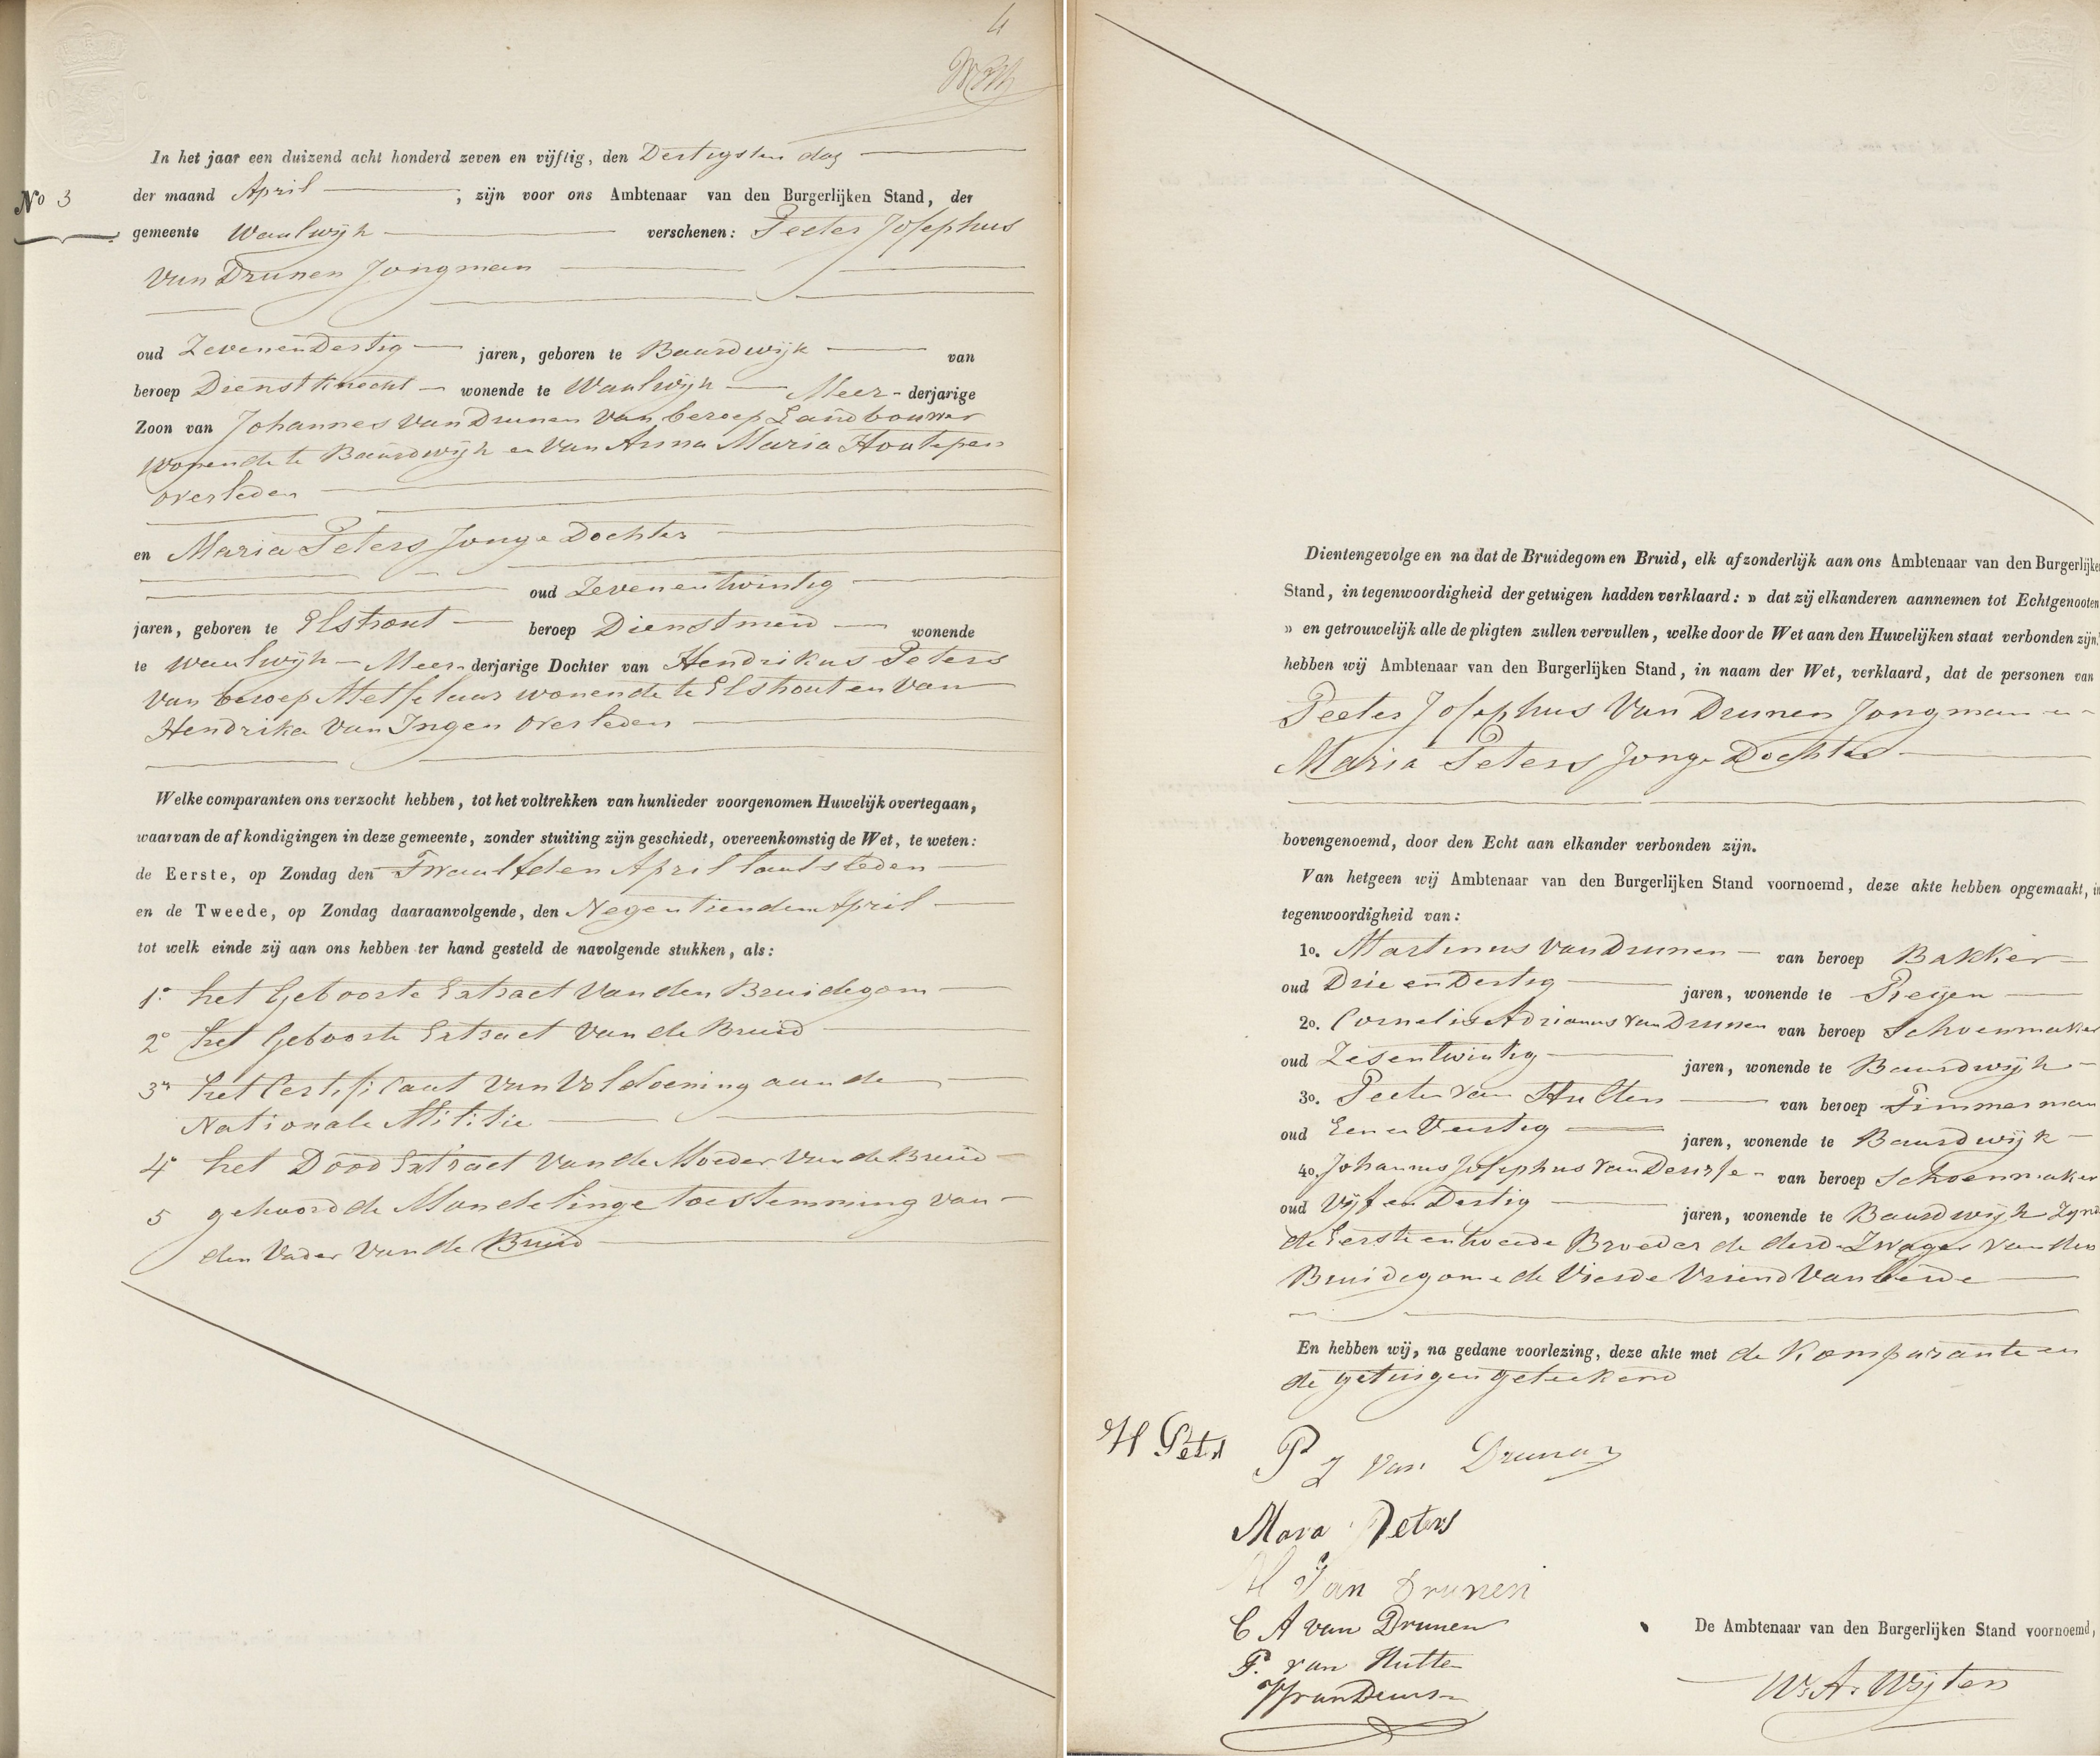 4
In het jaar een duizend acht honderd zeven en vijftig, den Dertigsten dag
No 3
der maand April ; zijn voor ons Ambtenaar van den Burgerlijken Stand, der
gemeente Waalwijk verschenen: Peeter Josephus
Van Drunen Jongman
oud Zevenendertig jaren, geboren te Baardwijk van
beroep Dienstknecht wonende te Waalwijk Meer-derjarige
Zoon van Johannes van Drunen van beroep Landbouwer
wonende te Baardwijk en van Anna Maria Houtepen
overleden
en Maria Peters Jonge Dochter
oud Zevenentwintig
jaren, geboren te Elshout beroep Dienstmeid wonende
te Waalwijk Meer-derjarige Dochter van Hendrikus Peters
van beroep Metselaar wonende te Elshout en van
Hendrika van Ingen overleden
Welke comparanten ons verzocht hebben, tot het voltrekken van hunlieder voorgenomen Huwelijk overtegaan,
waarvan de afkondigingen in deze gemeente, zonder stuiting zijn geschiedt, overeenkomstig de Wet, te weten:
de Eerste, op Zondag den Twaalfden April laatsleden
en de Tweede, op Zondag daaraanvolgende, den Negentienden April
tot welk einde zij aan ons hebben ter hand gesteld de navolgende stukken, als:
1o het Geboorte Extract van den Bruidegom
2o het Geboorte Extract van de Bruid
3o het Certificaat van Voldoening aan de
Nationale Militie
4o het Dood Extract van de Moeder van de Bruid
5 gehoord de Mondelinge toestemming van
den Vader van de Bruid
Dientengevolge en na dat de Bruidegom en Bruid, elk afzonderlijk aan ons Ambtenaar van den Burgerlijken
Stand, in tegenwoordigheid der getuigen hadden verklaard: » dat zij elkanderen aannemen tot Echtgenooten
» en getrouwelijk alle de pligten zullen vervullen, welke door de Wet aan den Huwelijken staat verbonden zijn,
hebben wij Ambtenaar van den Burgerlijken Stand, in naam der Wet, verklaard, dat de personen van
Peeter Josephus Van Drunen Jongman en
Maria Peters Jonge Dochter
bovengenoemd, door den Echt aan elkander verbonden zijn.
Van hetgeen wij Ambtenaar van den Burgerlijken Stand voornoemd, deze akte hebben opgemaakt, in
tegenwoordigheid van:
1o. Martinus van Drunen van beroep Bakker
oud Drie en Dertig jaren, wonende te Reijen
2o. Cornelis Adrianus van Drunen van beroep Schoenmaker
oud Zesentwintig jaren, wonende te Baardwijk
3o. Peeter van Hulten van beroep Timmerman
oud Een en Veertig jaren, wonende te Baardwijk
4o. Johannes Josephus van Deurse van beroep Schoenmaker
oud Vijf en Dertig jaren, wonende te Baardwijk Zijnde
de Eerste en tweede Broeder de derde Zwager van den
Bruidegom de Vierde Vriend van beide
En hebben wij, na gedane voorlezing, deze akte met de Komparante en
de getuigen geteekend
H Peters
P J van Drunen
Mara Peters
M Van Drunen
C A van Drunen
P. van Hulten
JJvanDeurse
De Ambtenaar van den Burgerlijken Stand voornoemd,
W. A. Wijten